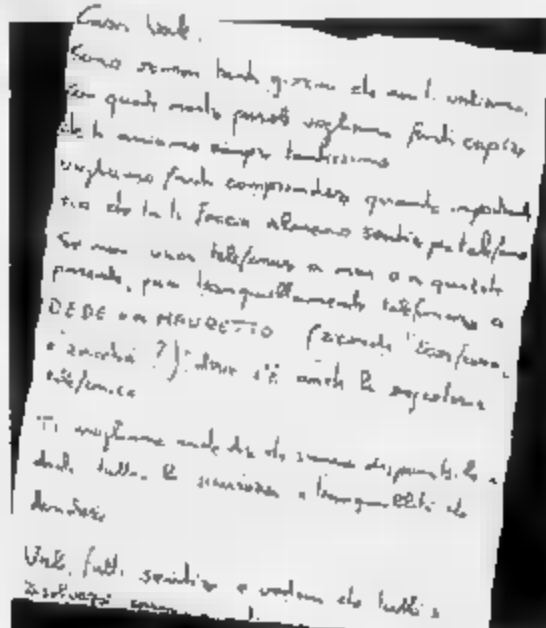 Cara Vale,
Sono ormai tanti giorni che non ti vediamo.
Con queste parole vogliamo farti capire
che ti amiamo sempre tantissimo
vogliamo farti comprendere quanto important
sia che tu ti faccia almeno sentire per telefono
Se non vuoi telefonare a noi o a questi
parenti, puoi tranquillamente telefonare a
DEDE o a MAURETTO dove c'è anche la segreteria
telefonica
Ti vogliamo anche dire che siamo disponibili a
darti tutta la sicurezza e tranquillità che
desideri
Vale, fatti sentire e vedrai che tutto si
risolverà